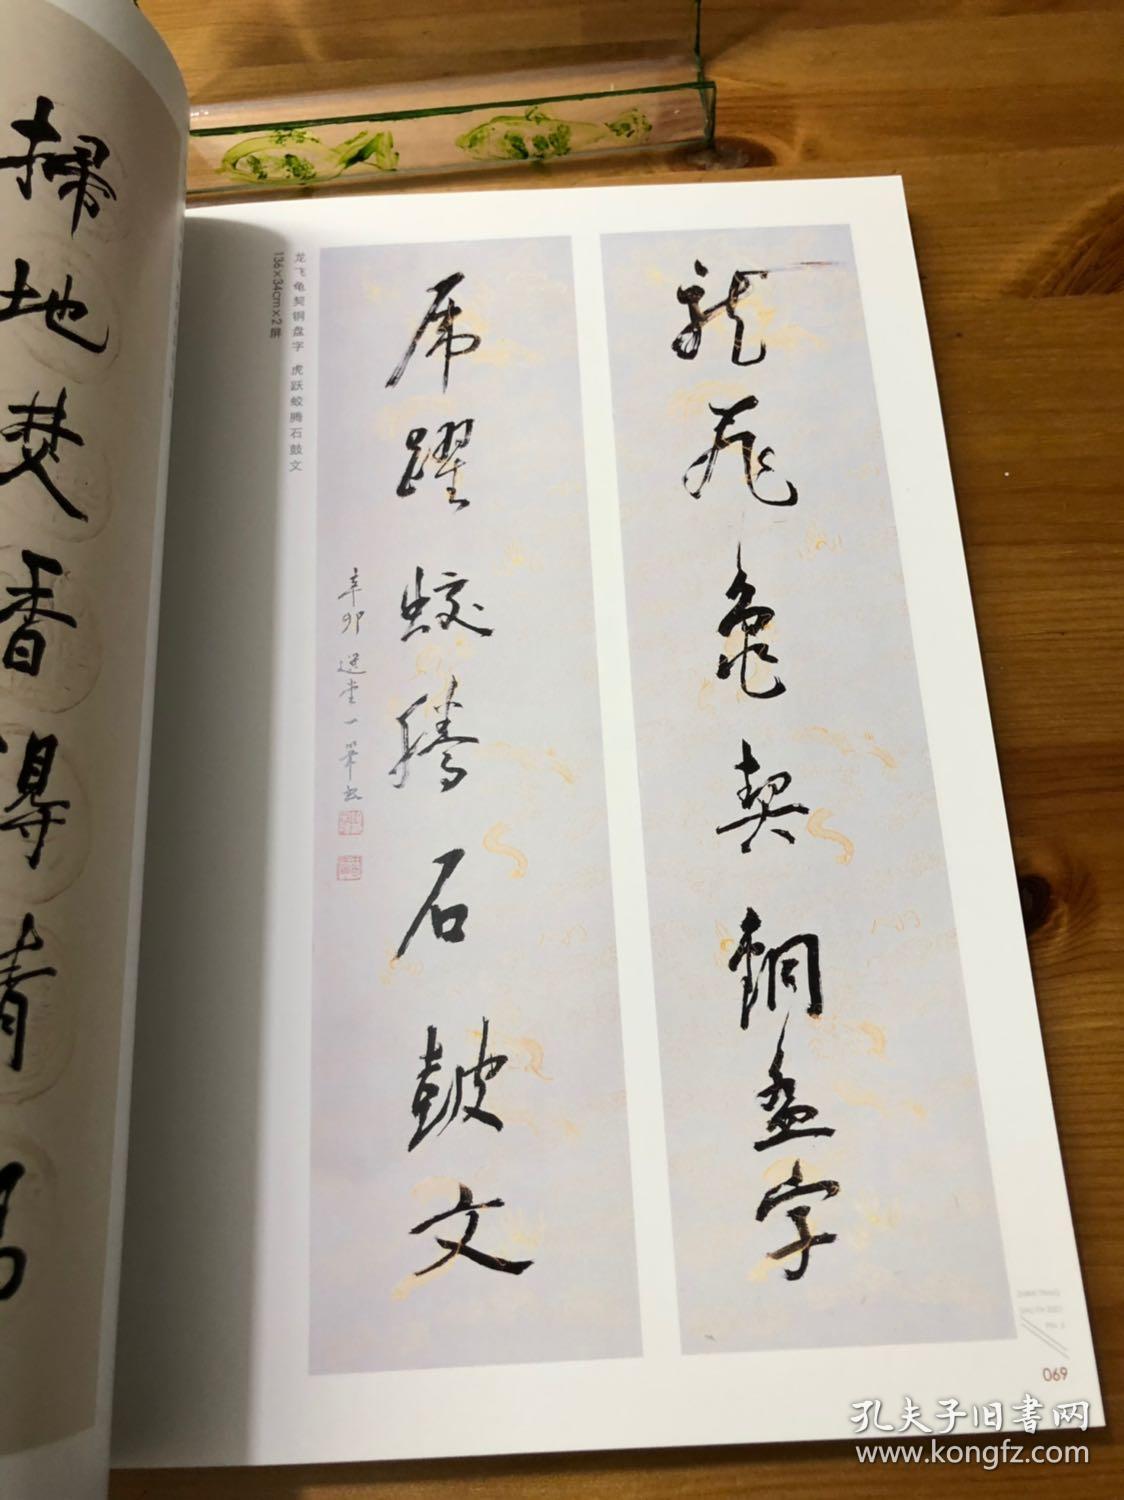 龍飛龜契銅盘字
席躍蛟腾石皷文
辛卯 選堂一筆书
龙飞龟契铜盘字 虎跃蛟腾石鼓文
136×34cm×2屏
掃地焚香得清
069
孔夫子旧書网
www.kongfz.com